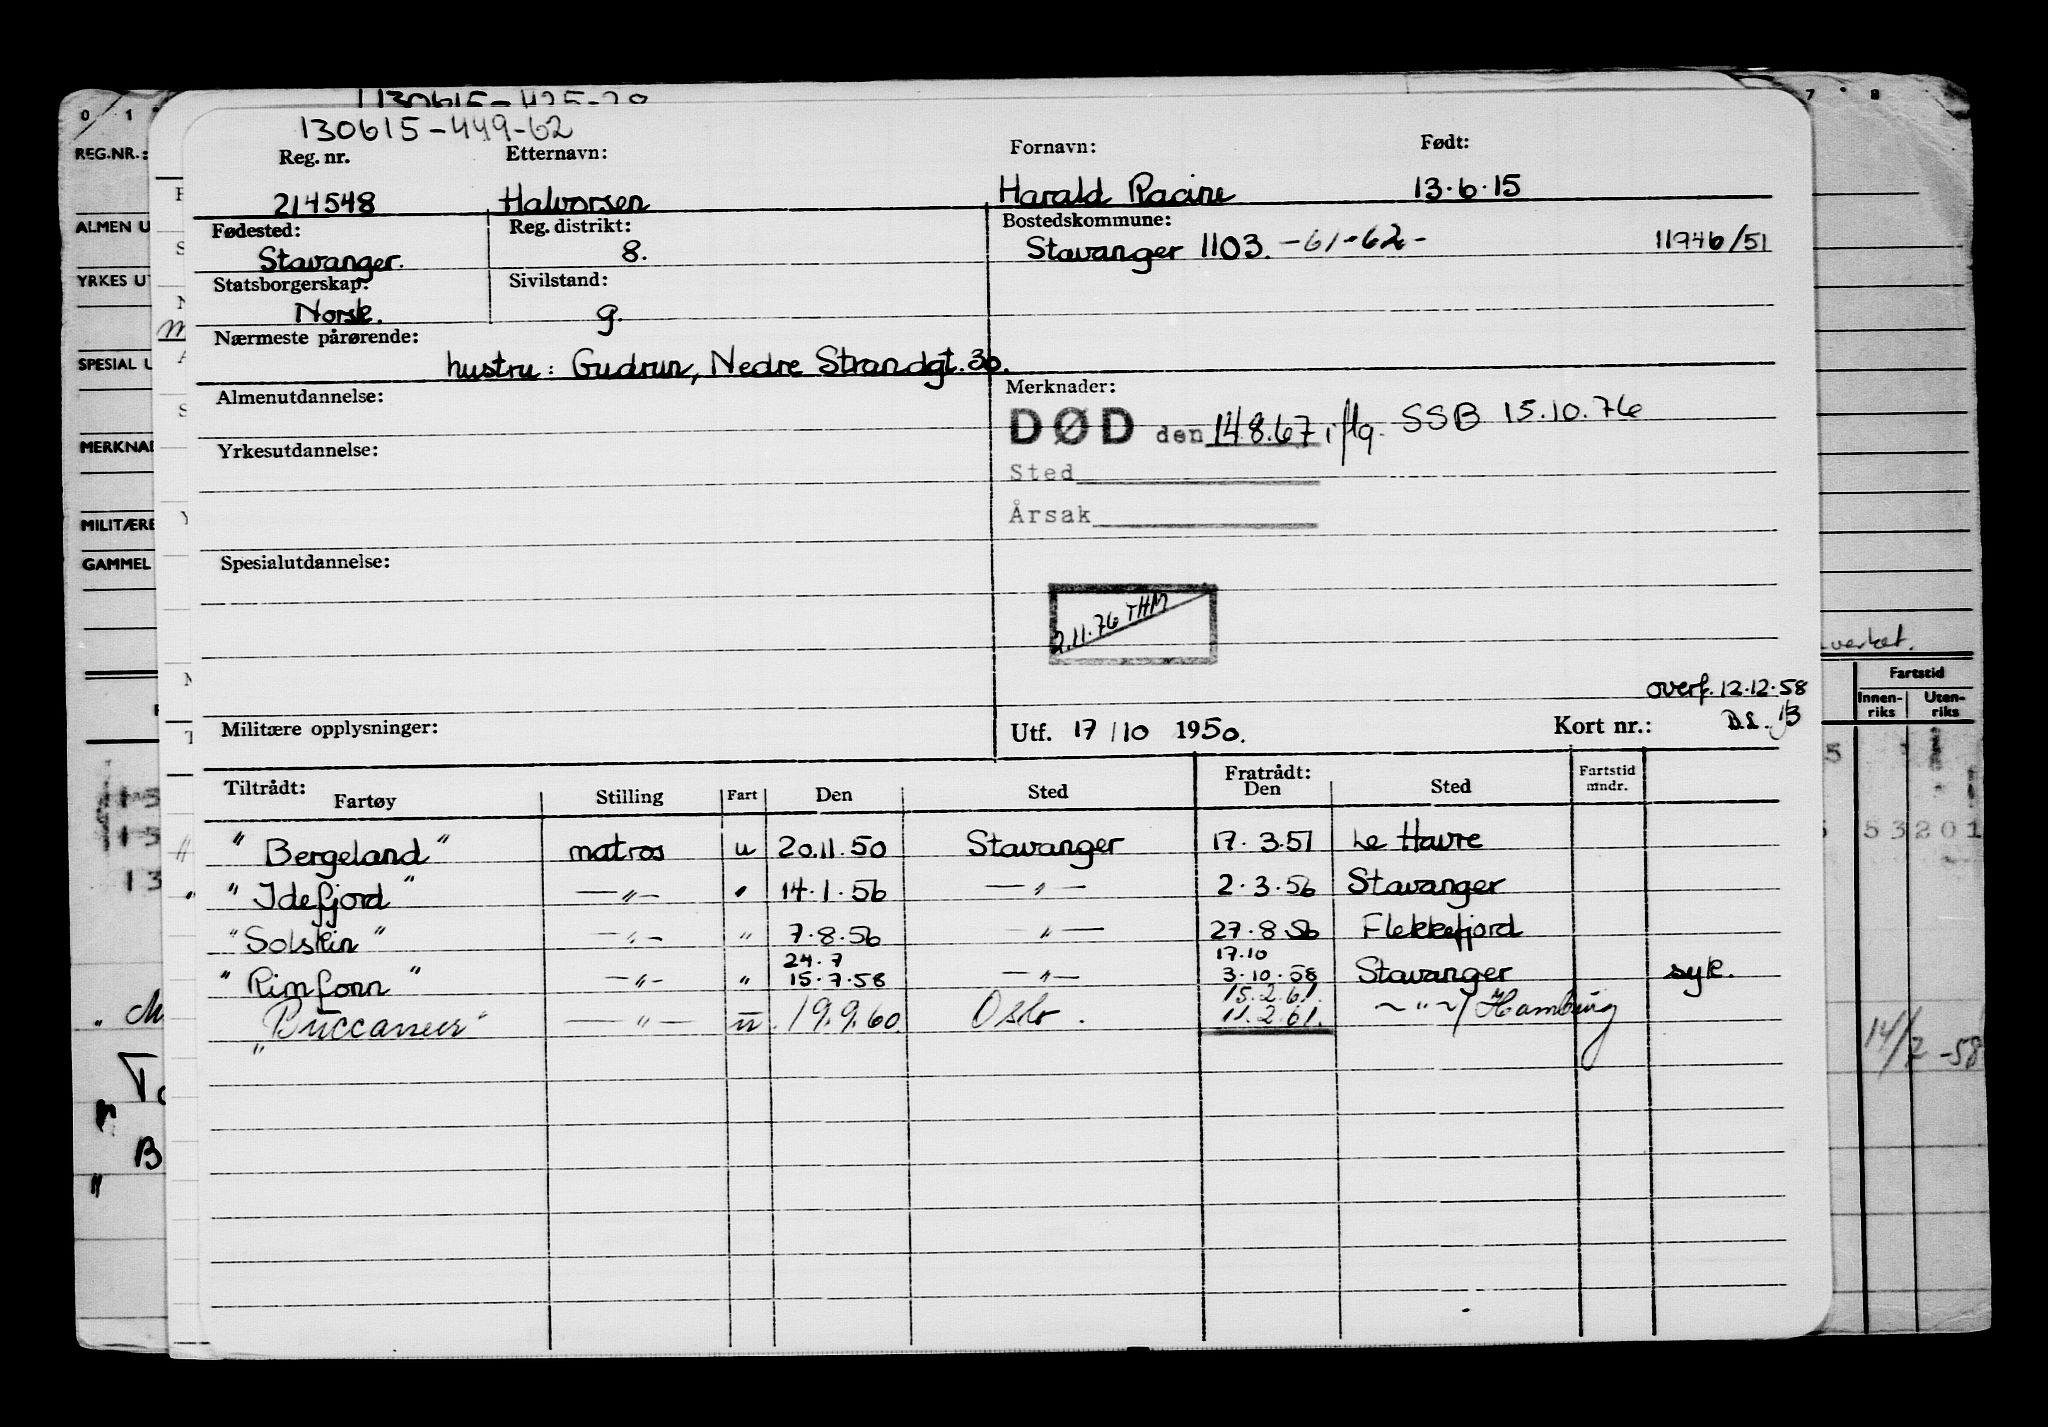 130615-449-62
Reg. nr. Etternavn: Fornavn: Født:
214548 Halvorsen Harald Racine 13.6.15
Fødested: Reg. distrikt: Bostedskommune:
Stavanger. 8. Stavanger 1103. -61-62- 11946/51
Statsborgerskap: Sivilstand:
Norsk. g.
Nærmeste pårørende:
hustru: Gudrun, Nedre Strandgt. 30.
Almenutdannelse: Merknader:
DØD den 14.8.67 iflg. SSB 15.10.76
Yrkesutdannelse:
Sted
Årsak
Spesialutdannelse:
2.11.76 THM
overf. 12.12.58
Militære opplysninger: Utf. 17/10 1950. Kort nr.:
Tiltrådt: Fratrådt:
Fartøy Stilling Fart Den Sted Den Sted Fartstid mndr.
"Bergeland" matros u 20.11.50 Stavanger 17.3.51 Le Havre
"Idefjord" —"— " 14.1.56 —"— 2.3.56 Stavanger
"Solskin" —"— " 7.8.56 —"— 27.8.56 Flekkefjord
24.7 17.10
"Rimfonn" —"— " 15.7.58 —"— 3.10.58 Stavanger syk.
15.2.61.
"Buccaneer" —"— u. 19.9.60. Oslo. 11.2.61. ~"~/Hamburg
0 1 7 8
REG.NR.:
ALMEN U
YRKES UT
SPESIAL U
MERKNAD
MILITÆRE
GAMMEL
Fartstid
Innen-riks Uten-riks
53 201
14/2-58